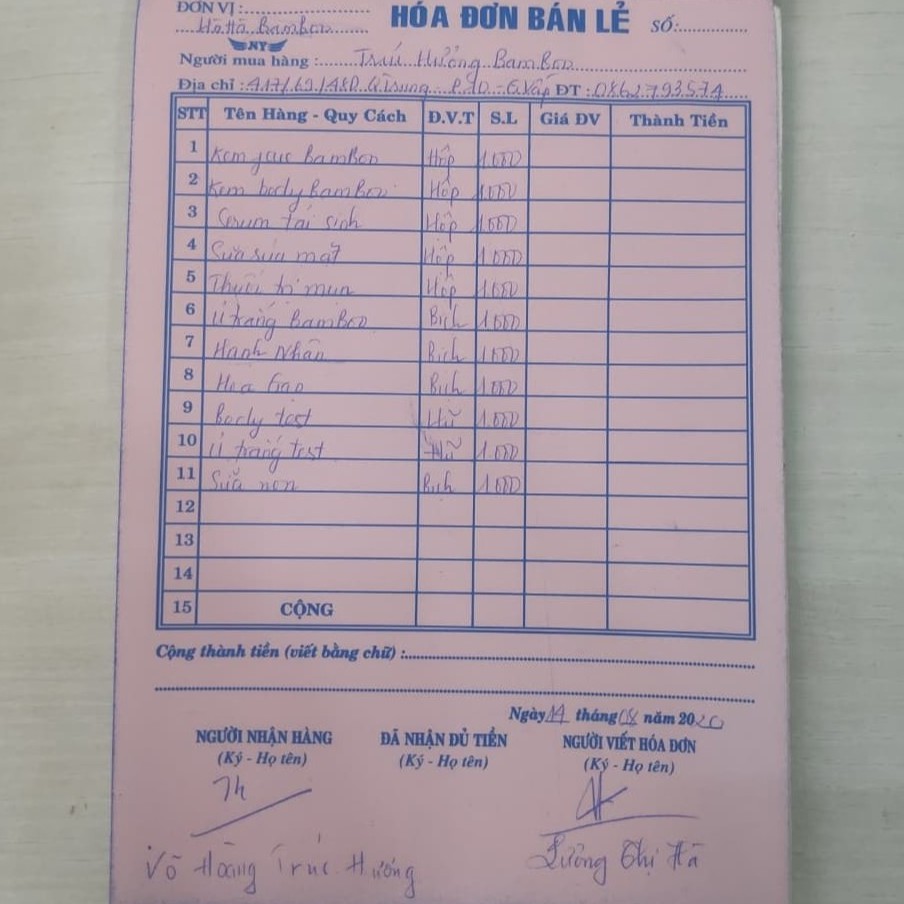 ĐƠN VỊ :
Hà Hà BamBoo
HÓA ĐƠN BÁN LẺ SỐ:
NY
Người mua hàng : Trúc Hường BamBoo
Địa chỉ : 417/69/48D Q.Trung P.10 - G.Vấp ĐT : 0862793574
STT Tên Hàng - Quy Cách Đ.V.T S.L Giá ĐV Thành Tiền
1 Kem face BamBoo Hộp 1.000
2 Kem body BamBoo Hộp 1.000
3 Serum tái sinh Hộp 1.000
4 Sữa rửa mặt Hộp 1.000
5 Thuốc trị mụn Hộp 1.000
6 Ủ trắng BamBoo Bịch 1.000
7 Hạnh Nhân Bịch 1.000
8 Hoa Bịch 1.000
9 Body test Hũ 1.000
10 Ủ trắng test Hũ 1.000
11 Sữa non Bịch 1.000
12
13
14
15 CỘNG
Cộng thành tiền (viết bằng chữ) :
Ngày 14 tháng 08 năm 2020
NGƯỜI NHẬN HÀNG ĐÃ NHẬN ĐỦ TIỀN NGƯỜI VIẾT HÓA ĐƠN
(Ký - Họ tên) (Ký - Họ tên) (Ký - Họ tên)
Võ Hoàng Trúc Hường Lường Thị Hà